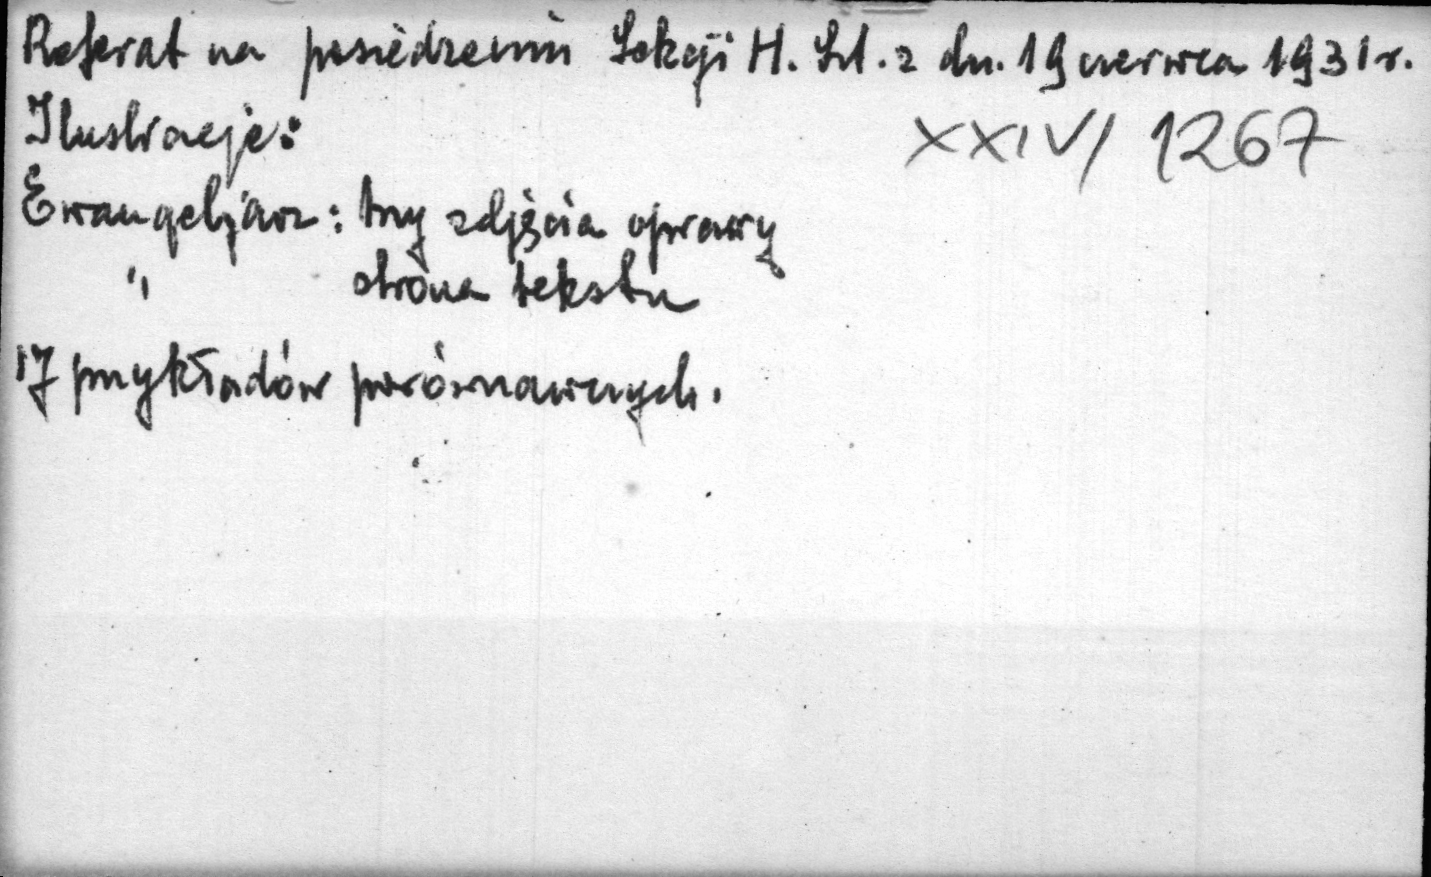 Referat na posiedzeniu Sekcji H. Szt. z dn. 19 czerwca 1931 r.
Ilustracje:
XXIV/ 1267
Ewangeljarz: trzy zdjęcia oprawy
" strona tekstu
17 przykładów porównawczych.